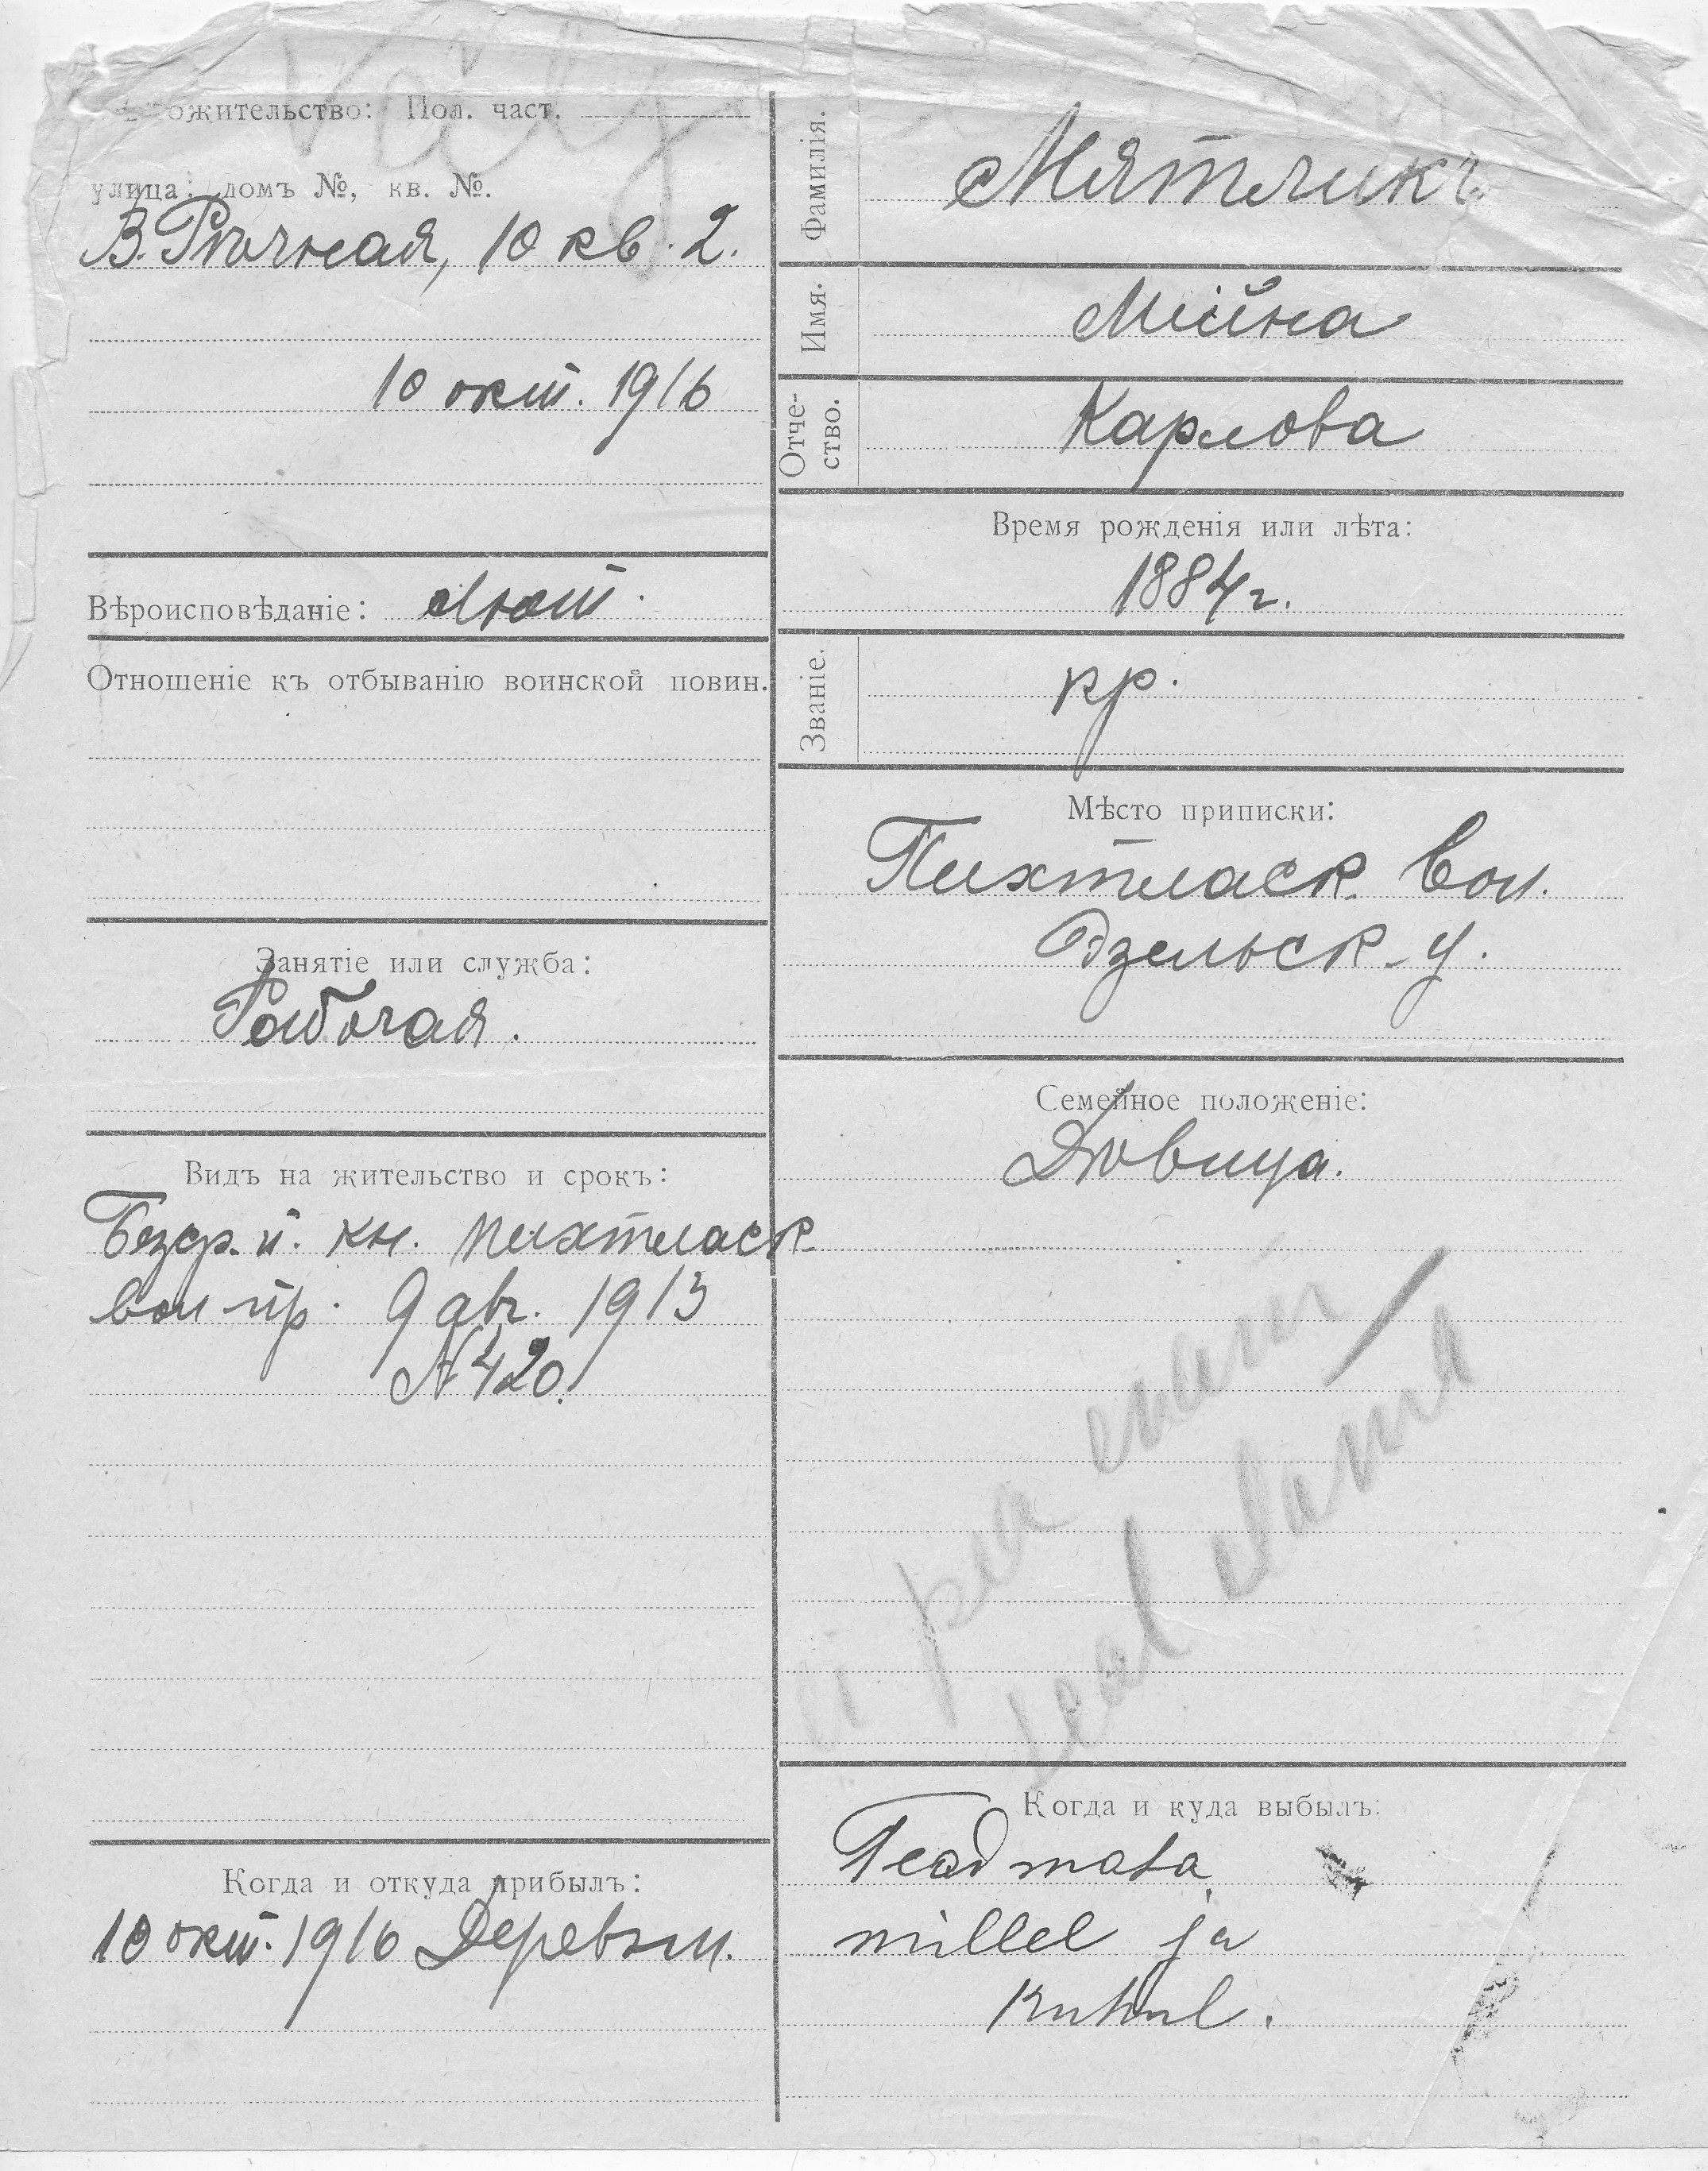 ожительство: Пол. част.
улица: домъ №, кв. №.
В. Рѣчная, 10 кв. 2.
10 окт. 1916
Вѣроисповѣданіе: Лют.
Отношеніе къ отбыванію воинской повин.
Занятіе или служба:
Рабочая.
Видъ на жительство и срокъ:
Безср. п. кн. Пихтласк.
вол. пр. 9 авг. 1913
N 420.
Когда и откуда прибылъ:
10 окт. 1916 Деревни.
Фамилія. Мятликъ
Имя. Мійна
Отче-
ство. Карлова
Время рожденія или лѣта:
1884 г.
Званіе. кр.
Мѣсто приписки:
Пихтласк. вол.
Эзельск. у.
Семейное положеніе:
Дѣвица.
ei pea enam
seal elama
Когда и куда выбылъ:
Teadmata
millel ja
kuhu